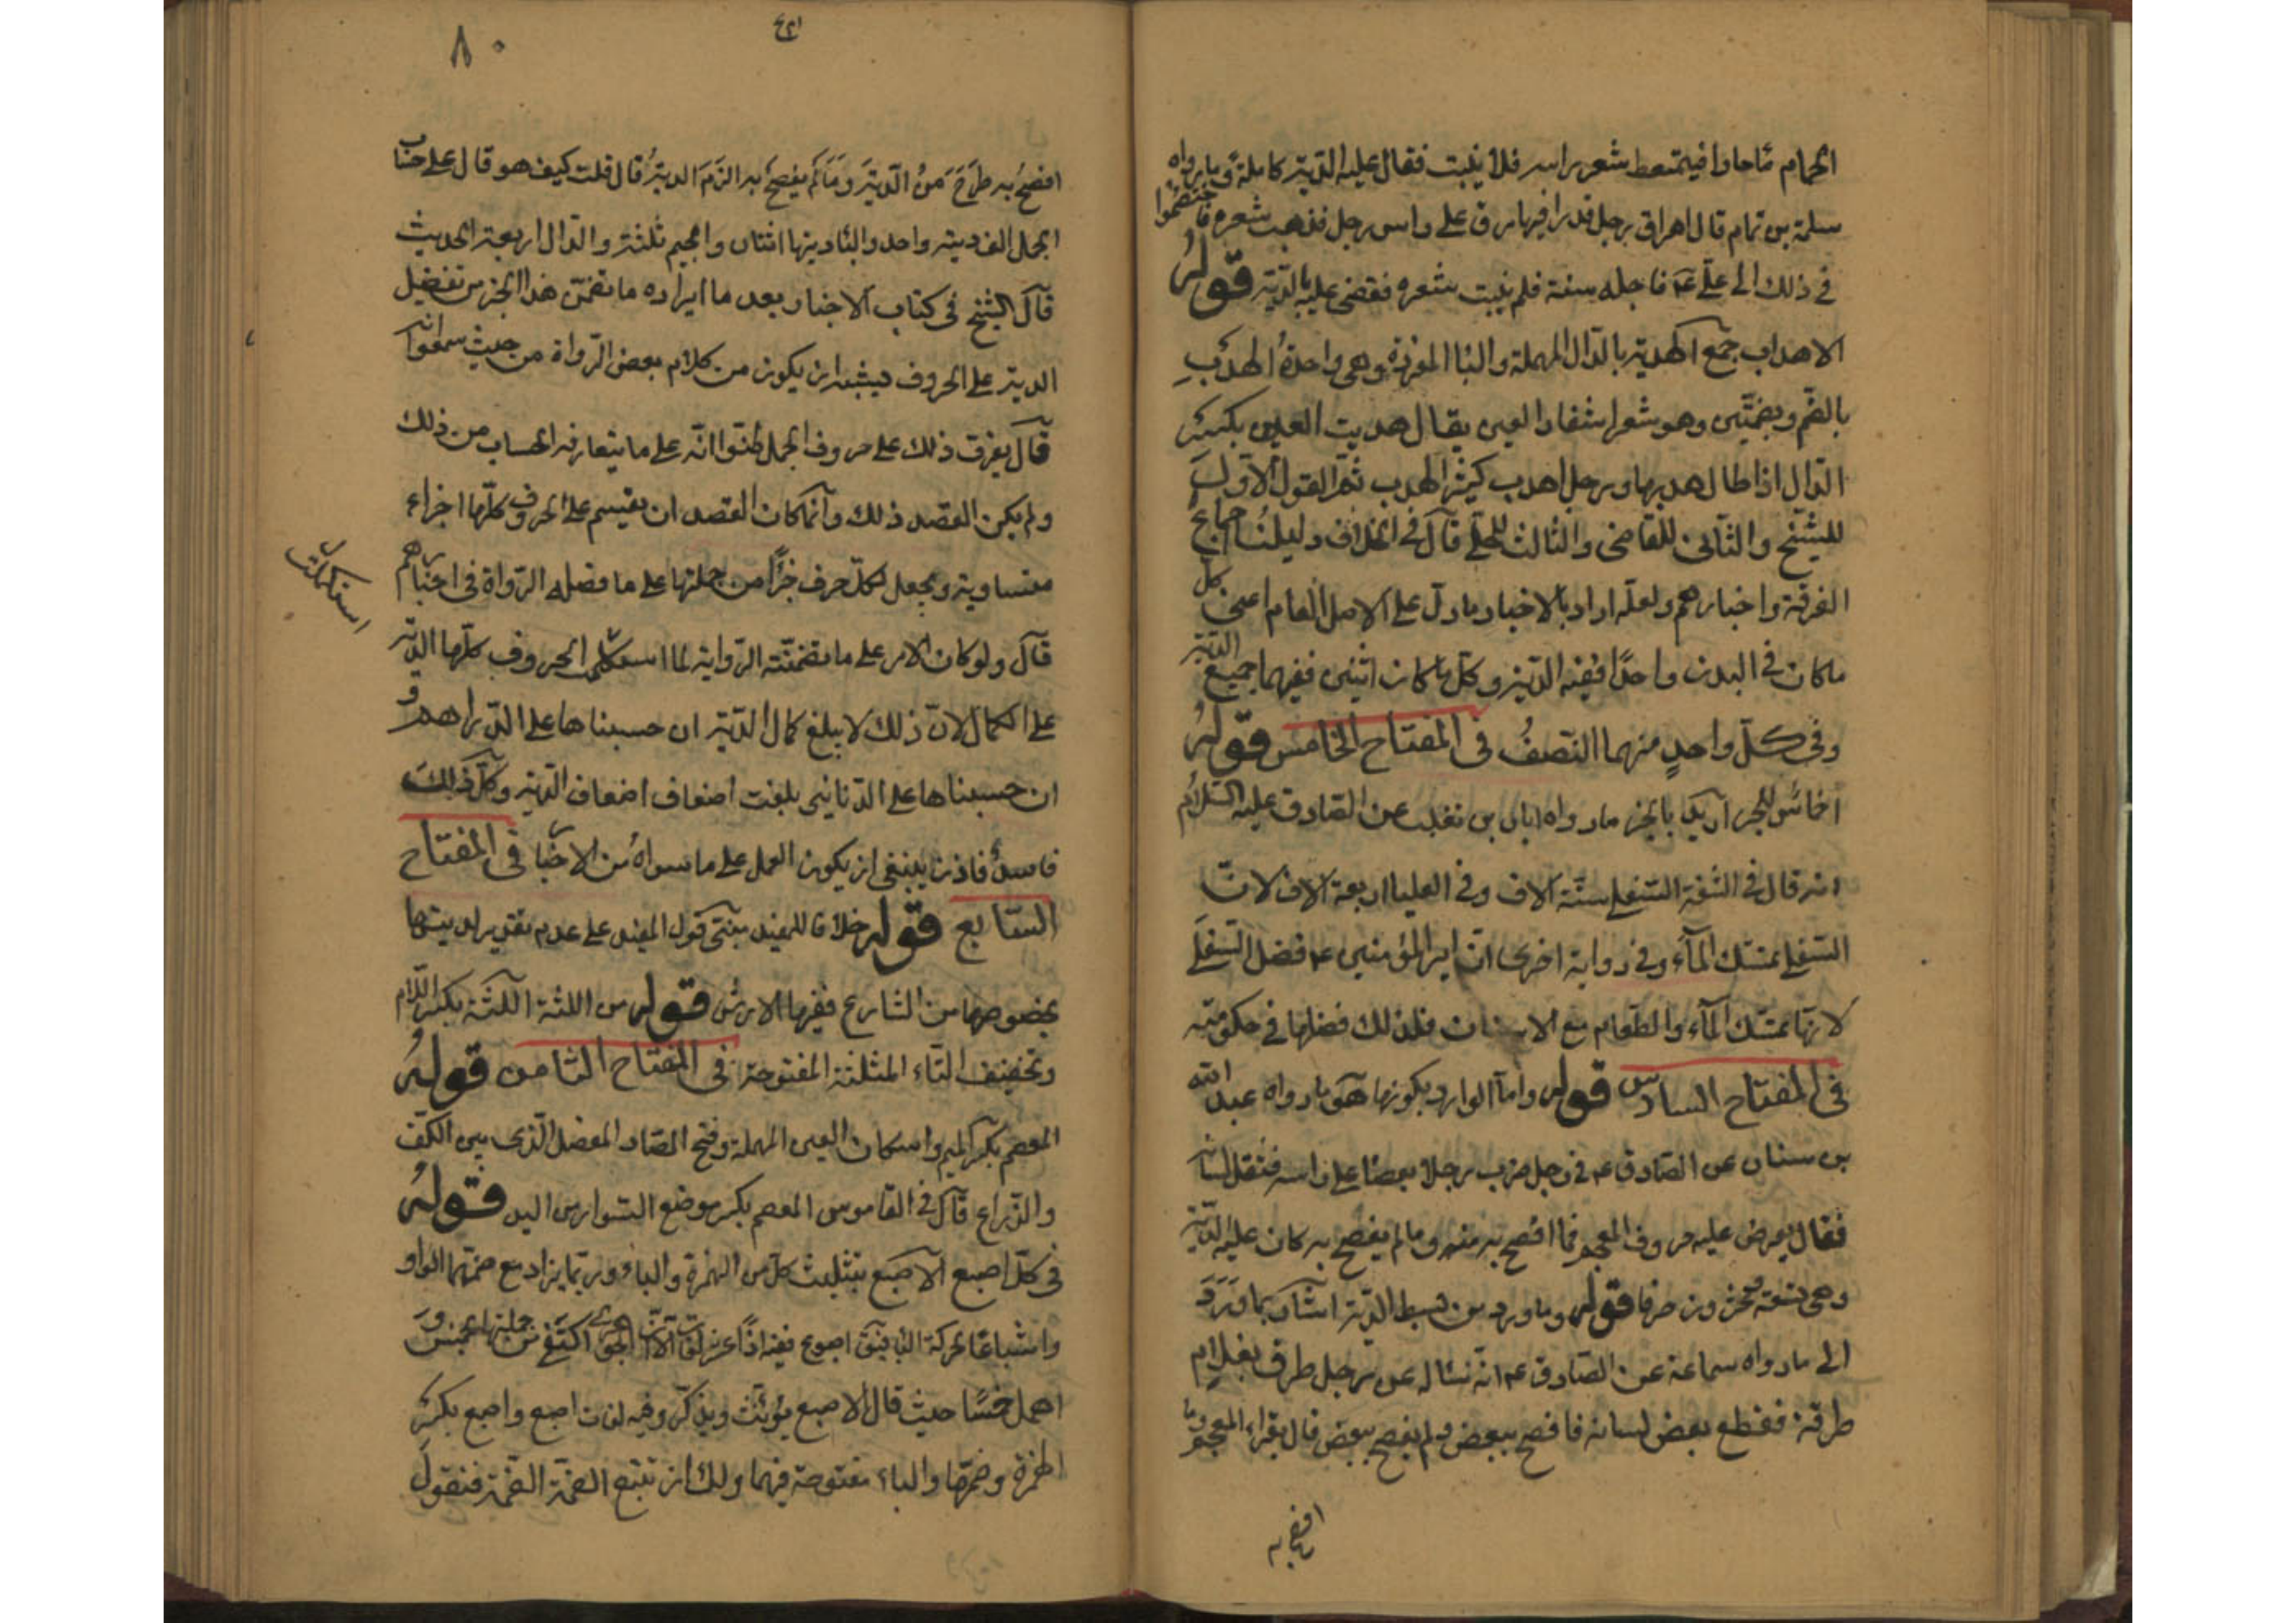 الحمام ماء حارا فيتمعط شعر راسه فلا ينبت فقال عليه الدية كاملة وما رواه
سلمة بن تمام قال اهراق رجل قدرا فيها مرق على راس رجل فذهب شعره فاختصموا
في ذلك الى علي عم فاجله سنة فلم ينبت شعره فقضى عليه بالدية قوله
الاهداب جمع الهدبة بالدال المهملة والباء المفردة وهي واحدة الهدب
بالضم وبضمتين وهو شعر اشفار العين يقال هدبت العين بكسر
الدال اذا طال هدبها ورجل اهدب كثير الهدب ثم القول الاول
للشيخ والثاني للقاضي والثالث للحلي قال في الخلاف دليلنا اجماع
الفرقة واخبارهم ولعله اراد بالاخبار ما دل على الاصل العام اعني كل
ما كان في البدن واحدا ففيه الدية وكل ما كان اثنين ففيهما جميع الدية
وفي كل واحد منهما النصف في المفتاح الخامس قوله
اخماس للخبر اريد بالخبر ما رواه ابان بن تغلب عن الصادق عليه السلام
انه قال في الشفة السفلى ستة آلاف وفي العليا اربعة آلاف لان
السفلى تمسك الماء وفي رواية اخرى ان امير المؤمنين عم فضل السفلى
لانها تمسك الماء والطعام مع الاسنان فلذلك فضلها في حكومته
في المفتاح السادس قوله واما الوارد بكونها هو ما رواه عبد الله
بن سنان عن الصادق عم في رجل ضرب رجلا بعصا على راسه فثقل لسانه
فقال يعرض عليه حروف المعجم فما افصح به منه وما لم يفصح به كان عليه الدية
وهي تسعة وعشرون حرفا قوله وما ورد من بسط الدية اشار بما ورد
الى ما رواه سماعة عن الصادق عم انه سأله عن رجل طرف بغلام
طرفة فقطع بعض لسانه فافصح ببعض ولم يفصح ببعض قال يقرأ المعجم فما
افصح به
٨٠
افصح به طرح من الدية وما لم يفصح به الزم الدية قال قلت كيف هو قال على حساب
الجمل الف ديته واحد والباء ديتها اثنان والجيم ثلثة والدال اربعة الحديث
قال الشيخ في كتاب الاخبار بعد ما ايراده ما تضمن هذا الخبر من تفضيل
الدية على الحروف فيشبه ان يكون من كلام بعض الرواة من حيث سمعوا انه
قال يفرق ذلك على حروف الجمل ظنوا انه على ما يتعارفه الحساب من ذلك
ولم يكن القصد ذلك وانما كان القصد ان يقسم على الحروف كلها اجزاء
متساوية ويجعل لكل حرف جزأ من جملتها على ما فصله الرواة في اخبارهم
قال ولو كان الامر على ما تضمنته الرواية لما استكملت الحروف كلها الدية
استكملت
على الكمال لان ذلك لا يبلغ كمال الدية ان حسبناها على الدراهم و
ان حسبناها على الدنانير بلغت اضعاف اضعاف الدية وكل ذلك
فاسد فاذن ينبغي ان يكون العمل على ما سواه من الاخبار في المفتاح
السابع قوله خلافا للمفيد مبنى قول المفيد على عدم تقدير لديتها
بخصوصها من الشارع ففيها الارش قوله من اللثة اللثة بكسر اللام
وتخفيف الثاء المثلثة المفتوحة في المفتاح الثامن قوله
المعصم بكسر الميم واسكان العين المهملة وفتح الصاد المفصل الذي بين الكف
والذراع قال في القاموس المعصم بكسر موضع السوار من اليد قوله
في كل اصبع الاصبع بتثليث كل من الهمزة والباء وربما يزاد مع ضمهما الواو
واشباعا لحركة الباء فيقال اصبوع ففيه اذا عشر لغات الا ان الجوهري اكتفى من جملتها بخمس و
اهمل خمسا حيث قال الاصبع يؤنث ويذكر وفيه لغات اصبع واصبع بكسر
الهمزة وضمها والباء مفتوحة فيهما ولك ان تتبع الضمة الضمة فتقول